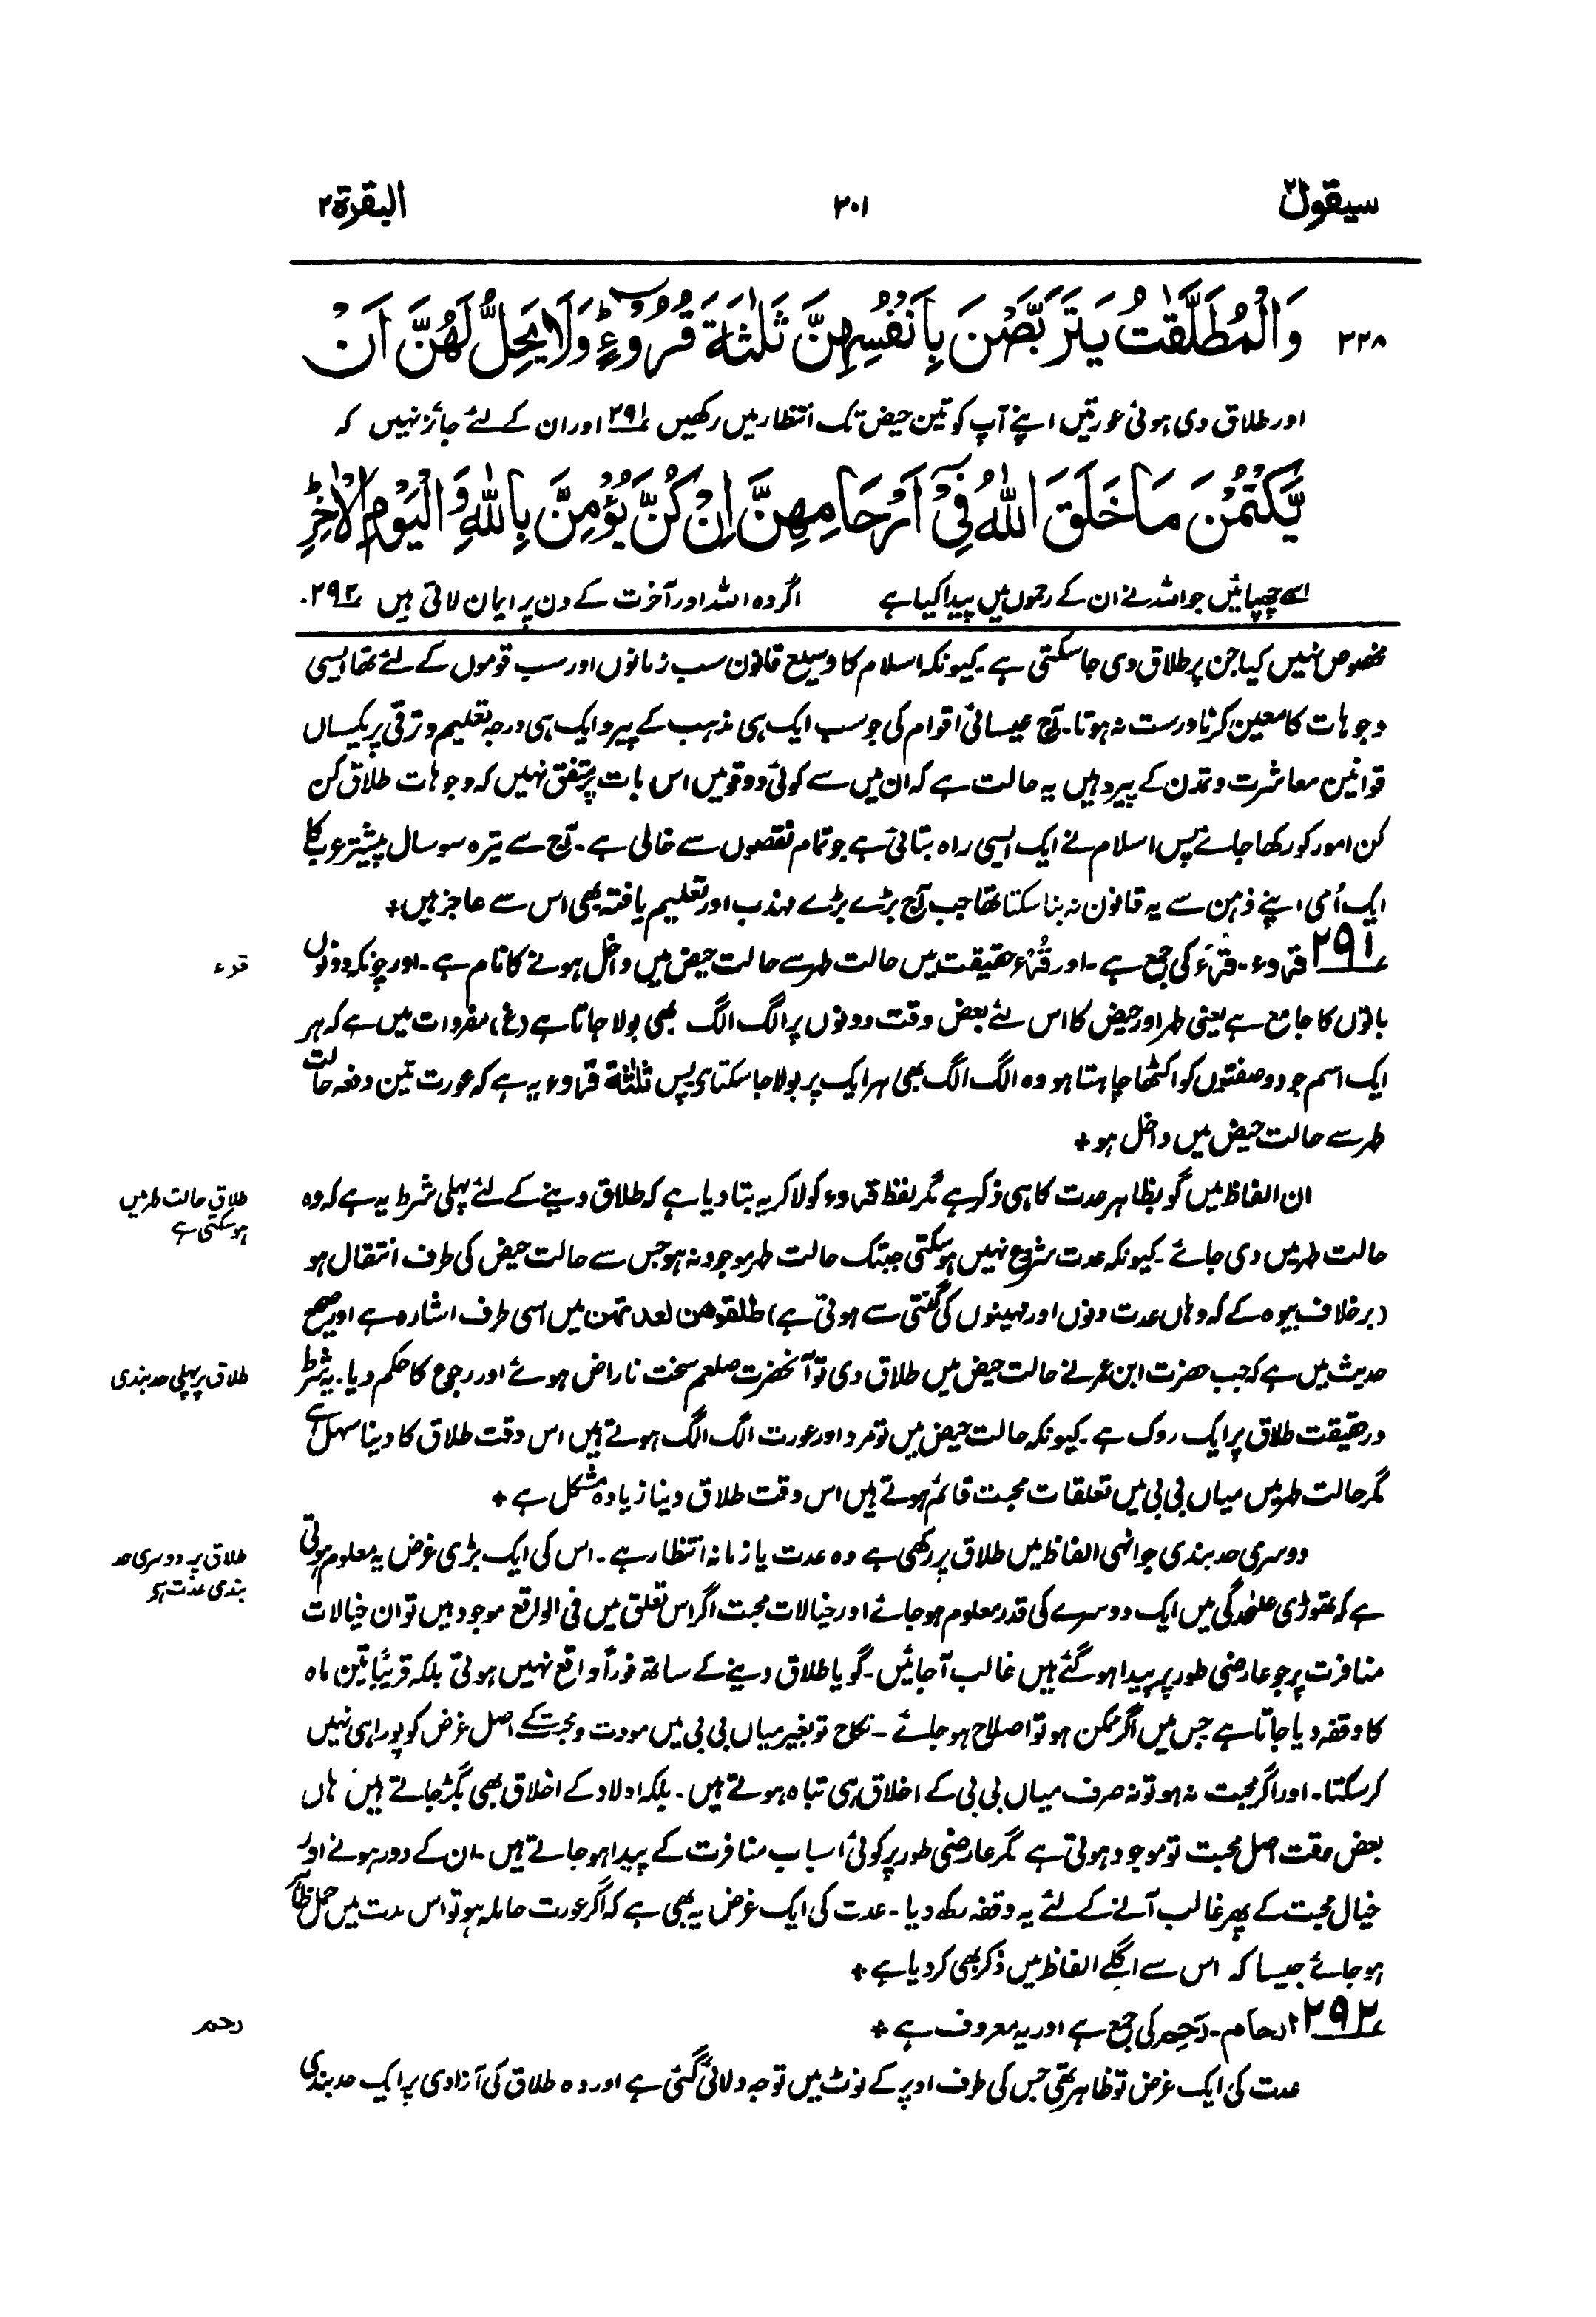 سیقول ۲
۲۰۱
البقرة ۲
۲۲۸ وَالْمُطَلَّقٰتُ يَتَرَبَّصْنَ بِاَنْفُسِهِنَّ ثَلٰثَةَ قُرُوْٓءٍ ؕ وَلَا يَحِلُّ لَهُنَّ اَنْ
اور طلاق دی ہوئی عورتیں اپنے آپ کو تین حیض تک انتظار میں رکھیں ۲۹۱ اور ان کے لئے جائز نہیں کہ
يَّكْتُمْنَ مَا خَلَقَ اللّٰهُ فِيْٓ اَرْحَامِهِنَّ اِنْ كُنَّ يُؤْمِنَّ بِاللّٰهِ وَالْيَوْمِ الْاٰخِرِ ؕ
اسے چھپائیں جو اللہ نے ان کے رحموں میں پیدا کیا ہے اگر وہ اللہ اور آخرت کے دن پر ایمان لاتی ہیں ۲۹۲۔
مخصوص نہیں کیا جن پر طلاق دی جا سکتی ہے۔ کیونکہ اسلام کا وسیع قانون سب زمانوں اور سب قوموں کے لئے تھا ایسی
وجوہات کا معین کرنا درست نہ ہوتا۔ آج عیسائی اقوام کی جو سب ایک ہی مذہب کے پیرو ایک ہی درجہ تعلیم و ترقی پر یکساں
قوانین معاشرت و تمدن کے پیرو ہیں یہ حالت ہے کہ ان میں سے کوئی دو قومیں اس بات پر متفق نہیں کہ وجوہات طلاق کن
کن امور کو رکھا جائے پس اسلام نے ایک ایسی راہ بتائی ہے جو تمام نقصوں سے خالی ہے۔ آج سے تیرہ سو سال پیشتر عرب کا
ایک اُمی اپنے ذہن سے یہ قانون نہ بنا سکتا تھا جب آج بڑے بڑے مہذب اور تعلیم یافتہ بھی اس سے عاجز ہیں+
۲۹۱ قروء۔ قرء کی جمع ہے۔ اور قُرْء حقیقت میں حالت طہر سے حالت حیض میں داخل ہونے کا نام ہے۔ اور چونکہ دونوں
قرء
باتوں کا جامع ہے یعنی طہر اور حیض کا اس لئے بعض وقت دونوں پر الگ الگ بھی بولا جاتا ہے (غ) مفردات میں ہے کہ ہر
ایک اسم جو دو صفتوں کو اکٹھا چاہتا ہو وہ الگ الگ بھی ہر ایک پر بولا جا سکتا ہی پس ثلثة قروء یہ ہے کہ عورت تین دفعہ حالت
طہر سے حالت حیض میں داخل ہو+
ان الفاظ میں گو بظاہر عدت کا ہی ذکر ہے مگر لفظ قروء کو لا کر یہ بتا دیا ہے کہ طلاق دینے کے لئے پہلی شرط یہ ہے کہ وہ
طلاق حالت طہر میں
ہو سکتی ہے
حالت طہر میں دی جائے۔ کیونکہ عدت شروع نہیں ہو سکتی جبتک حالت طہر موجود نہ ہو جس سے حالت حیض کی طرف انتقال ہو
(برخلاف بیوہ کے کہ وہاں عدت دنوں اور مہینوں کی گنتی سے ہوتی ہے) طلقوهن لعدتهن میں اسی طرف اشارہ ہے اور صحیح
حدیث میں ہے کہ جب حضرت ابن عمر نے حالت حیض میں طلاق دی تو آنحضرت صلعم سخت ناراض ہوئے اور رجوع کا حکم دیا۔ یہ شرط
طلاق پر پہلی حد بندی
درحقیقت طلاق پر ایک روک ہے۔ کیونکہ حالت حیض میں تو مرد اور عورت الگ الگ ہوتے ہیں اس وقت طلاق کا دینا سہل ہے
مگر حالت طہر میں میاں بی بی میں تعلقات محبت قائم ہوتے ہیں اس وقت طلاق دینا زیادہ مشکل ہے+
دوسری حد بندی جو انہی الفاظ میں طلاق پر رکھی ہے وہ عدت یا زمانہ انتظار ہے۔ اس کی ایک بڑی غرض یہ معلوم ہوتی
طلاق پر دوسری حد
بندی عدت ہو
ہے کہ تھوڑی علیحدگی میں ایک دوسرے کی قدر معلوم ہو جائے اور خیالات محبت اگر اس تعلق میں فی الواقع موجود ہیں تو ان خیالات
منافرت پر جو عارضی طور پر پیدا ہو گئے ہیں غالب آ جائیں۔ گویا طلاق دینے کے ساتھ فوراً واقع نہیں ہوتی بلکہ قریباً تین ماہ
کا وقفہ دیا جاتا ہے جس میں اگر ممکن ہو تو اصلاح ہو جائے۔ نکاح تو بغیر میاں بی بی میں مودت و محبت کے اصل غرض کو پورا ہی نہیں
کر سکتا۔ اور اگر محبت نہ ہو تو نہ صرف میاں بی بی کے اخلاق ہی تباہ ہوتے ہیں۔ بلکہ اولاد کے اخلاق بھی بگڑ جاتے ہیں ہاں
بعض وقت اصل محبت تو موجود ہوتی ہے مگر عارضی طور پر کوئی اسباب منافرت کے پیدا ہو جاتے ہیں۔ ان کے دور ہونے اور
خیال محبت کے پھر غالب آنے کے لئے یہ وقفہ رکھ دیا۔ عدت کی ایک غرض یہ بھی ہے کہ اگر عورت حاملہ ہو تو اس مدت میں حمل ظاہر
ہو جائے جیسا کہ اس سے اگلے الفاظ میں ذکر بھی کر دیا ہے+
۲۹۲ ارحام۔ رَحِم کی جمع ہے اور یہ معروف ہے+
رحم
عدت کی ایک غرض تو ظاہر تھی جس کی طرف اوپر کے نوٹ میں توجہ دلائی گئی ہے اور وہ طلاق کی آزادی پر ایک حد بندی